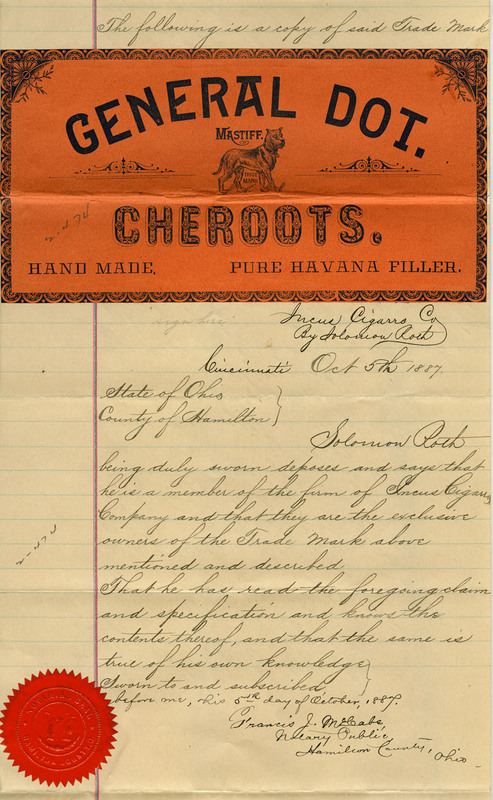 The following is a copy of said Trade Mark
GENERAL DOT.
MASTIFF.
TRADE MARK
CHEROOTS.
HAND MADE,
PURE HAVANA FILLER.
sign here
Incus Cigarro Co
By Solomon Roth
Cincinnati Oct 5th 1887.
State of Ohio
County of Hamilton
Solomon Roth
being duly sworn deposes and says that
he is a member of the firm of Incus Cigarro
Company and that they are the exclusive
owners of the Trade Mark above
mentioned and described
That he has read the foregoing claim
and specification and knows the
contents thereof, and that the same is
true of his own knowledge
Sworn to and subscribed
before me, this 5th day of October, 1887.
Francis J. McCabe
Notary Public,
Hamilton County, Ohio